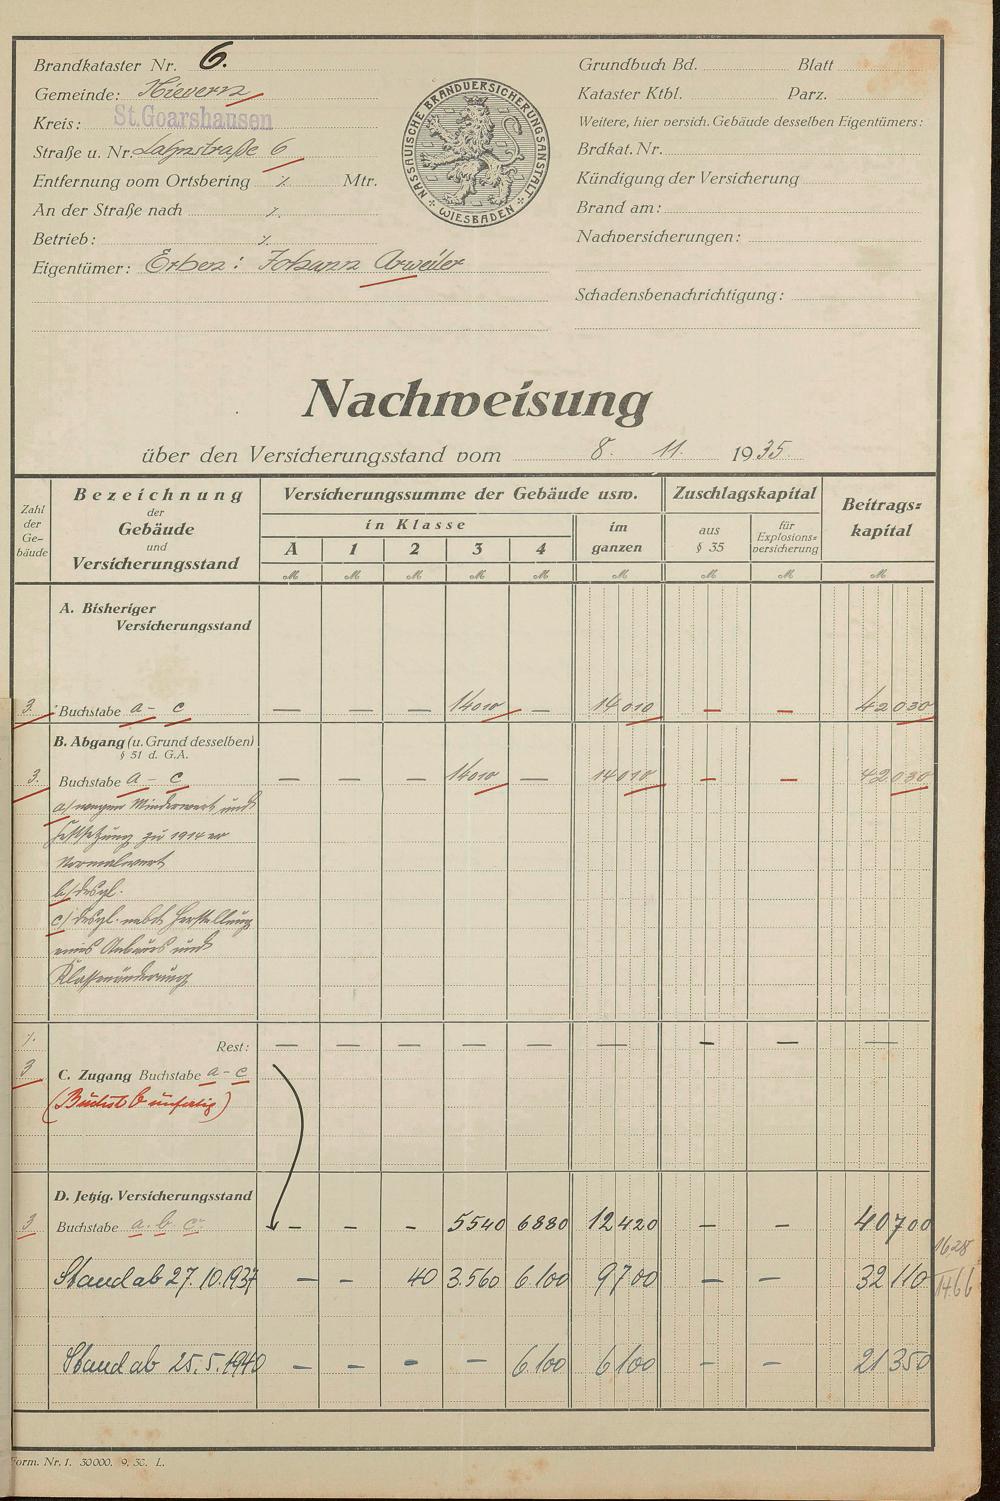 Brandkataster Nr. 6.
Gemeinde: Nievern
Kreis: St. Goarshausen
Straße u. Nr. Lahnstraße 6
Entfernung vom Ortsbering ./. Mtr.
An der Straße nach ./.
Betrieb: ./.
Eigentümer: Erben: Johann Arweiler
NASSAUISCHE BRANDVERSICHERUNGSANSTALT
WIESBADEN
Grundbuch Bd. Blatt
Kataster Ktbl. Parz.
Weitere, hier versich. Gebäude desselben Eigentümers:
Brdkat. Nr.
Kündigung der Versicherung
Brand am:
Nachversicherungen:
Schadensbenachrichtigung:
Nachweisung
über den Versicherungsstand vom 8. 11. 1935.
Zahl der Ge-bäude
Bezeichnung der Gebäude und Versicherungsstand
Versicherungssumme der Gebäude usw.
in Klasse
A 1 2 3 4
im ganzen
Zuschlagskapital
aus § 35
für Explosions-versicherung
Beitrags-kapital
M M M M M M M M M
A. Bisheriger
Versicherungsstand
3. Buchstabe a - c — — — 14010 — 14010 — — 42030
B. Abgang (u. Grund desselben)
§ 51 d. G.A.
3. Buchstabe a - c — — — 14010 — 14010 — — 42030
a) wegen Minderwert und
Festsetzung zu 1914er
Normalwert
b) desgl.
c) desgl. nebst Herstellung
eines Anbaues und
Klassenänderung
./. Rest: — — — — — — — — —
3 C. Zugang Buchstabe a - c
(Buchst. b unfertig)
D. Jetzig. Versicherungsstand
3 Buchstabe a. b. c. — — — 5540 6880 12420 — — 40700
1628
Stand ab 27.10.1937 — — 40 3.560 6.100 9700 — — 32110
1466
Stand ab 25.5.1940 — — — — 6.100 6100 — — 21350
Form. Nr. 1. 30000. 9. 30. L.